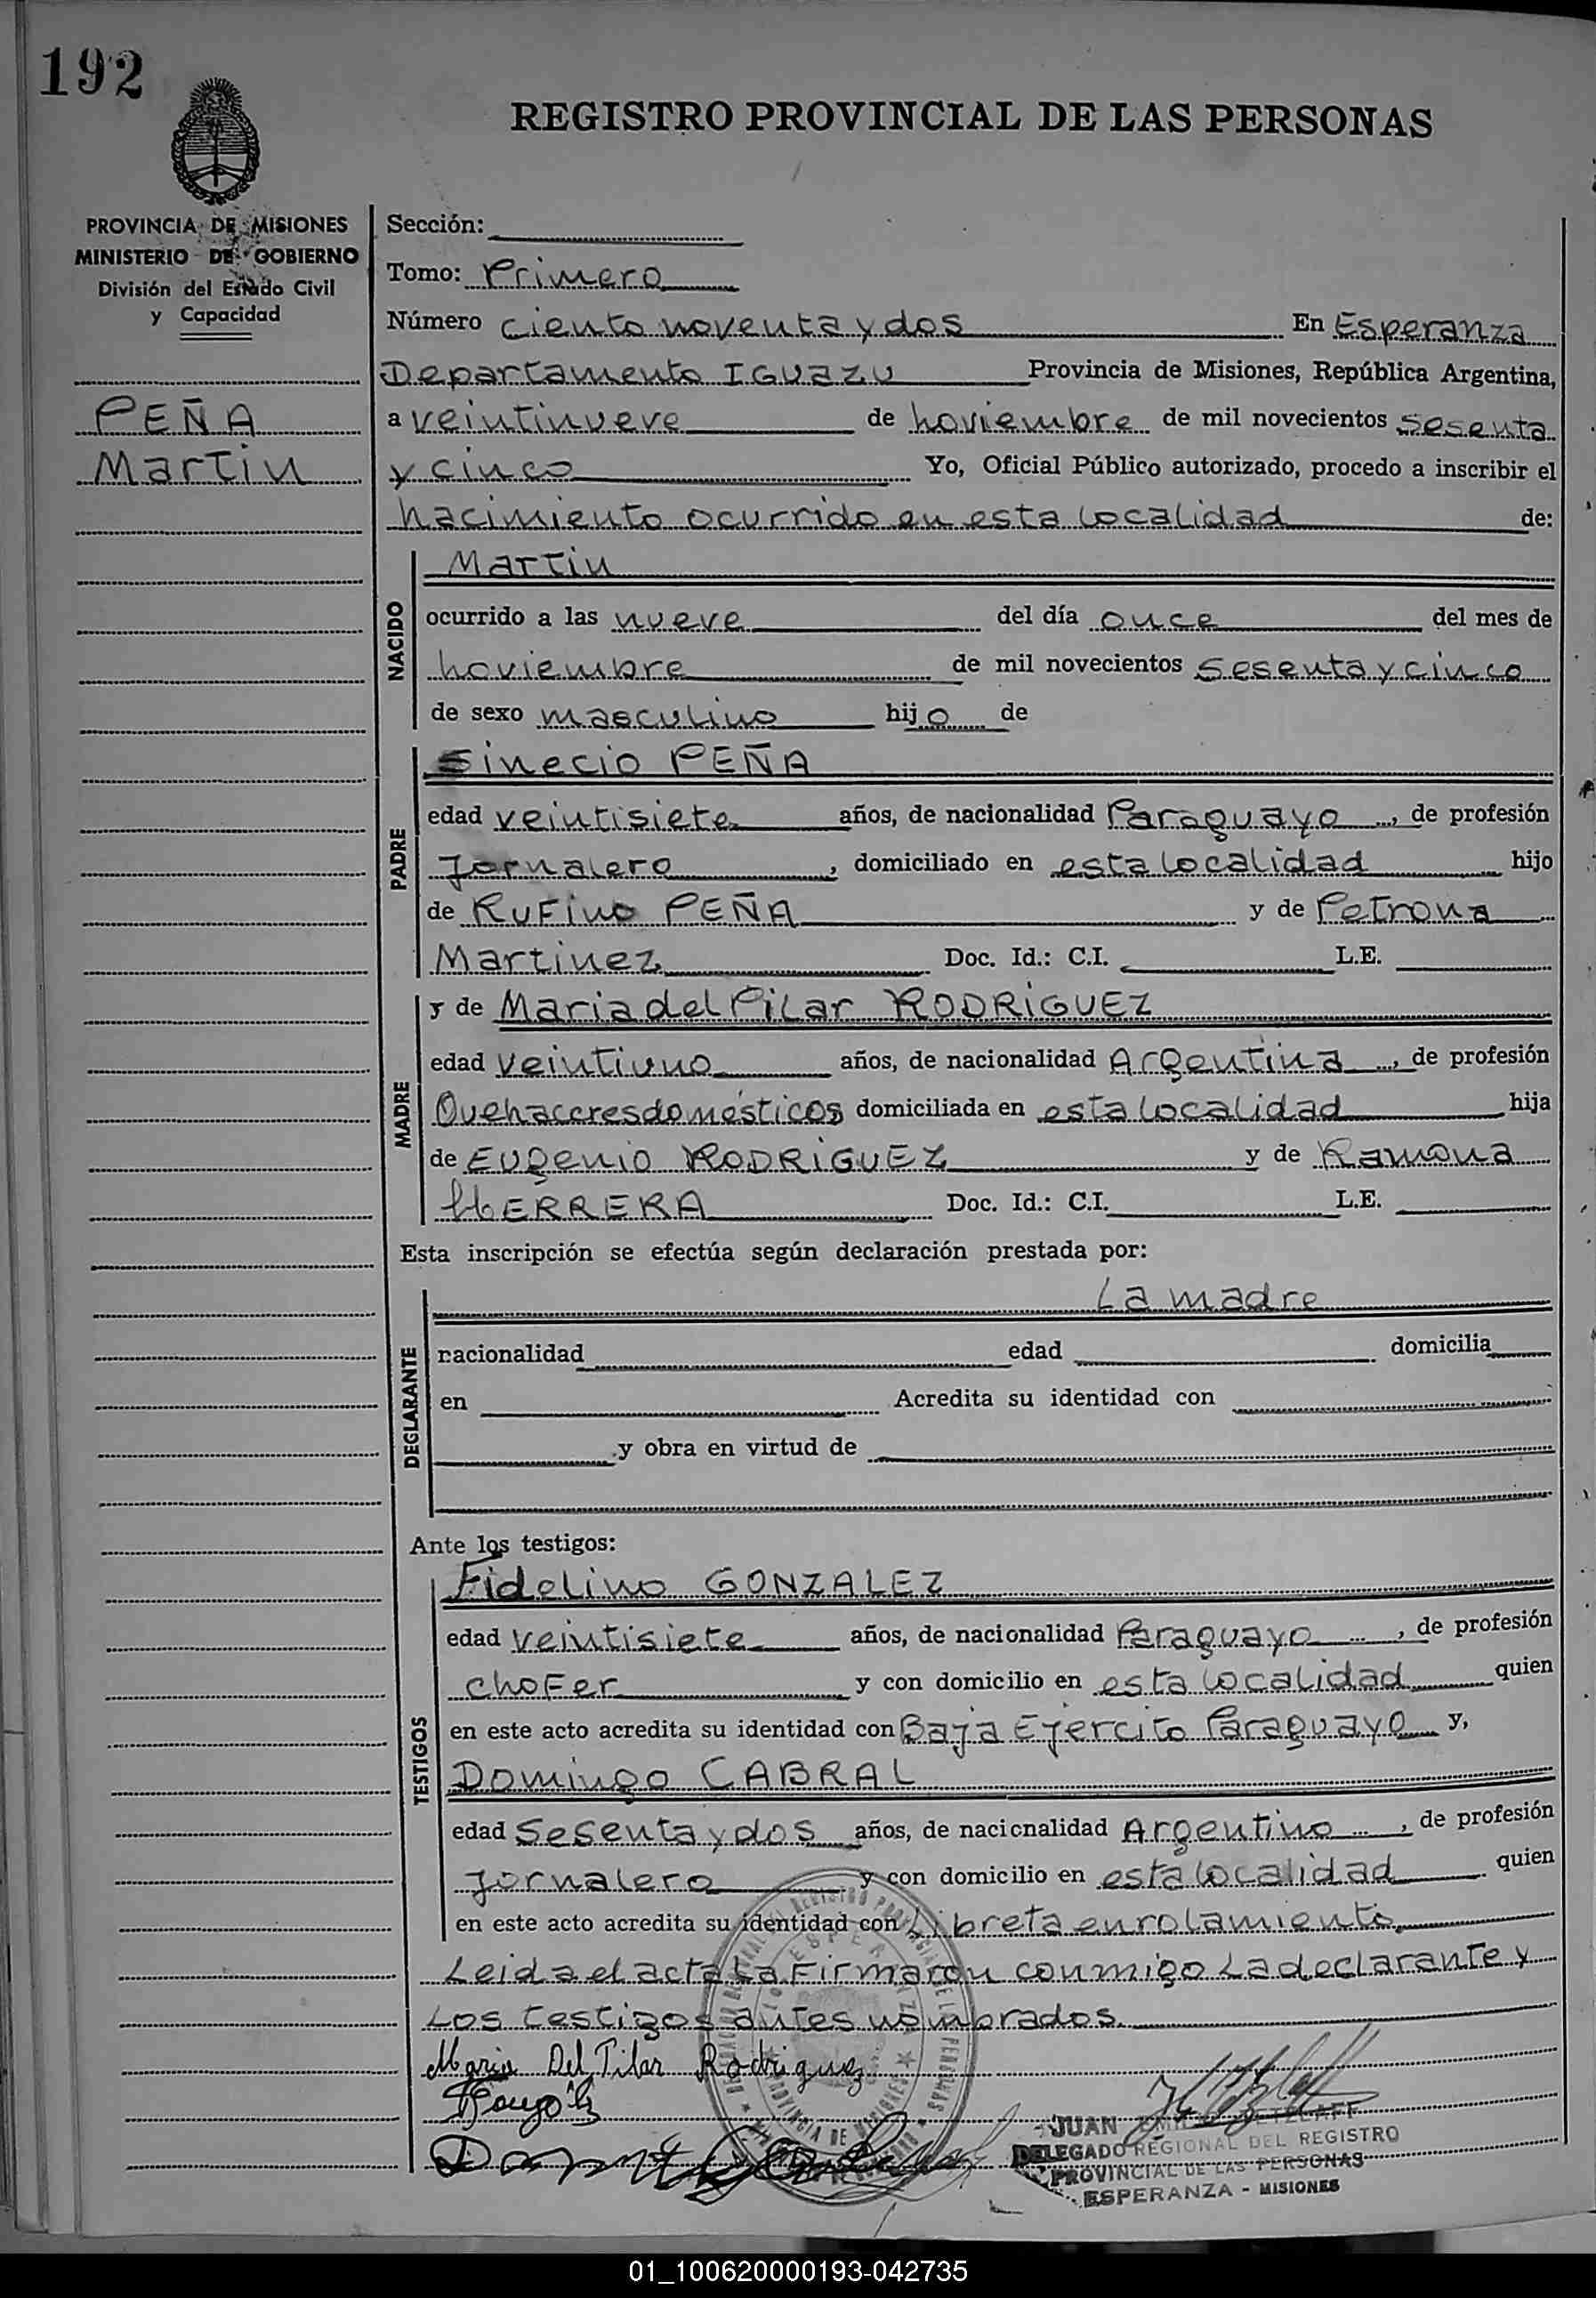 192
REGISTRO PROVINCIAL DE LAS PERSONAS
PROVINCIA DE MISIONES
MINISTERIO DE GOBIERNO
División del Estado Civil
y Capacidad
PEÑA
Martin
Sección:
Tomo: Primero
Número ciento noventa y dos En Esperanza
Departamento IGUAZU Provincia de Misiones, República Argentina,
a veintinueve de noviembre de mil novecientos sesenta
y cinco Yo, Oficial Público autorizado, procedo a inscribir el
nacimiento ocurrido en esta localidad de:
NACIDO
Martin
ocurrido a las nueve del día once del mes de
noviembre de mil novecientos sesenta y cinco
de sexo masculino hijo de
PADRE
Sinecio PEÑA
edad veintisiete años, de nacionalidad Paraguayo, de profesión
Jornalero, domiciliado en esta localidad hijo
de Rufino PEÑA y de Petrona
Martinez Doc. Id.: C.I. L.E.
MADRE
y de Maria del Pilar RODRIGUEZ
edad veintiuno años, de nacionalidad Argentina, de profesión
Quehaceres domésticos domiciliada en esta localidad hija
de Eugenio RODRIGUEZ y de Ramona
HERRERA Doc. Id.: C.I. L.E.
Esta inscripción se efectúa según declaración prestada por:
DECLARANTE
La madre
nacionalidad edad domicilia
en Acredita su identidad con
y obra en virtud de
Ante los testigos:
TESTIGOS
Fidelino GONZALEZ
edad veintisiete años, de nacionalidad Paraguayo, de profesión
chofer y con domicilio en esta localidad quien
en este acto acredita su identidad con Baja Ejercito Paraguayo y,
Domingo CABRAL
edad sesenta y dos años, de nacionalidad Argentino, de profesión
Jornalero y con domicilio en esta localidad quien
en este acto acredita su identidad con Libreta enrolamiento.
Leida el acta la firmaron conmigo La declarante y
Los testigos antes nombrados.
Maria Del Pilar Rodriguez
JUAN
DELEGADO REGIONAL DEL REGISTRO
PROVINCIAL DE LAS PERSONAS
ESPERANZA - MISIONES
01_100620000193-042735